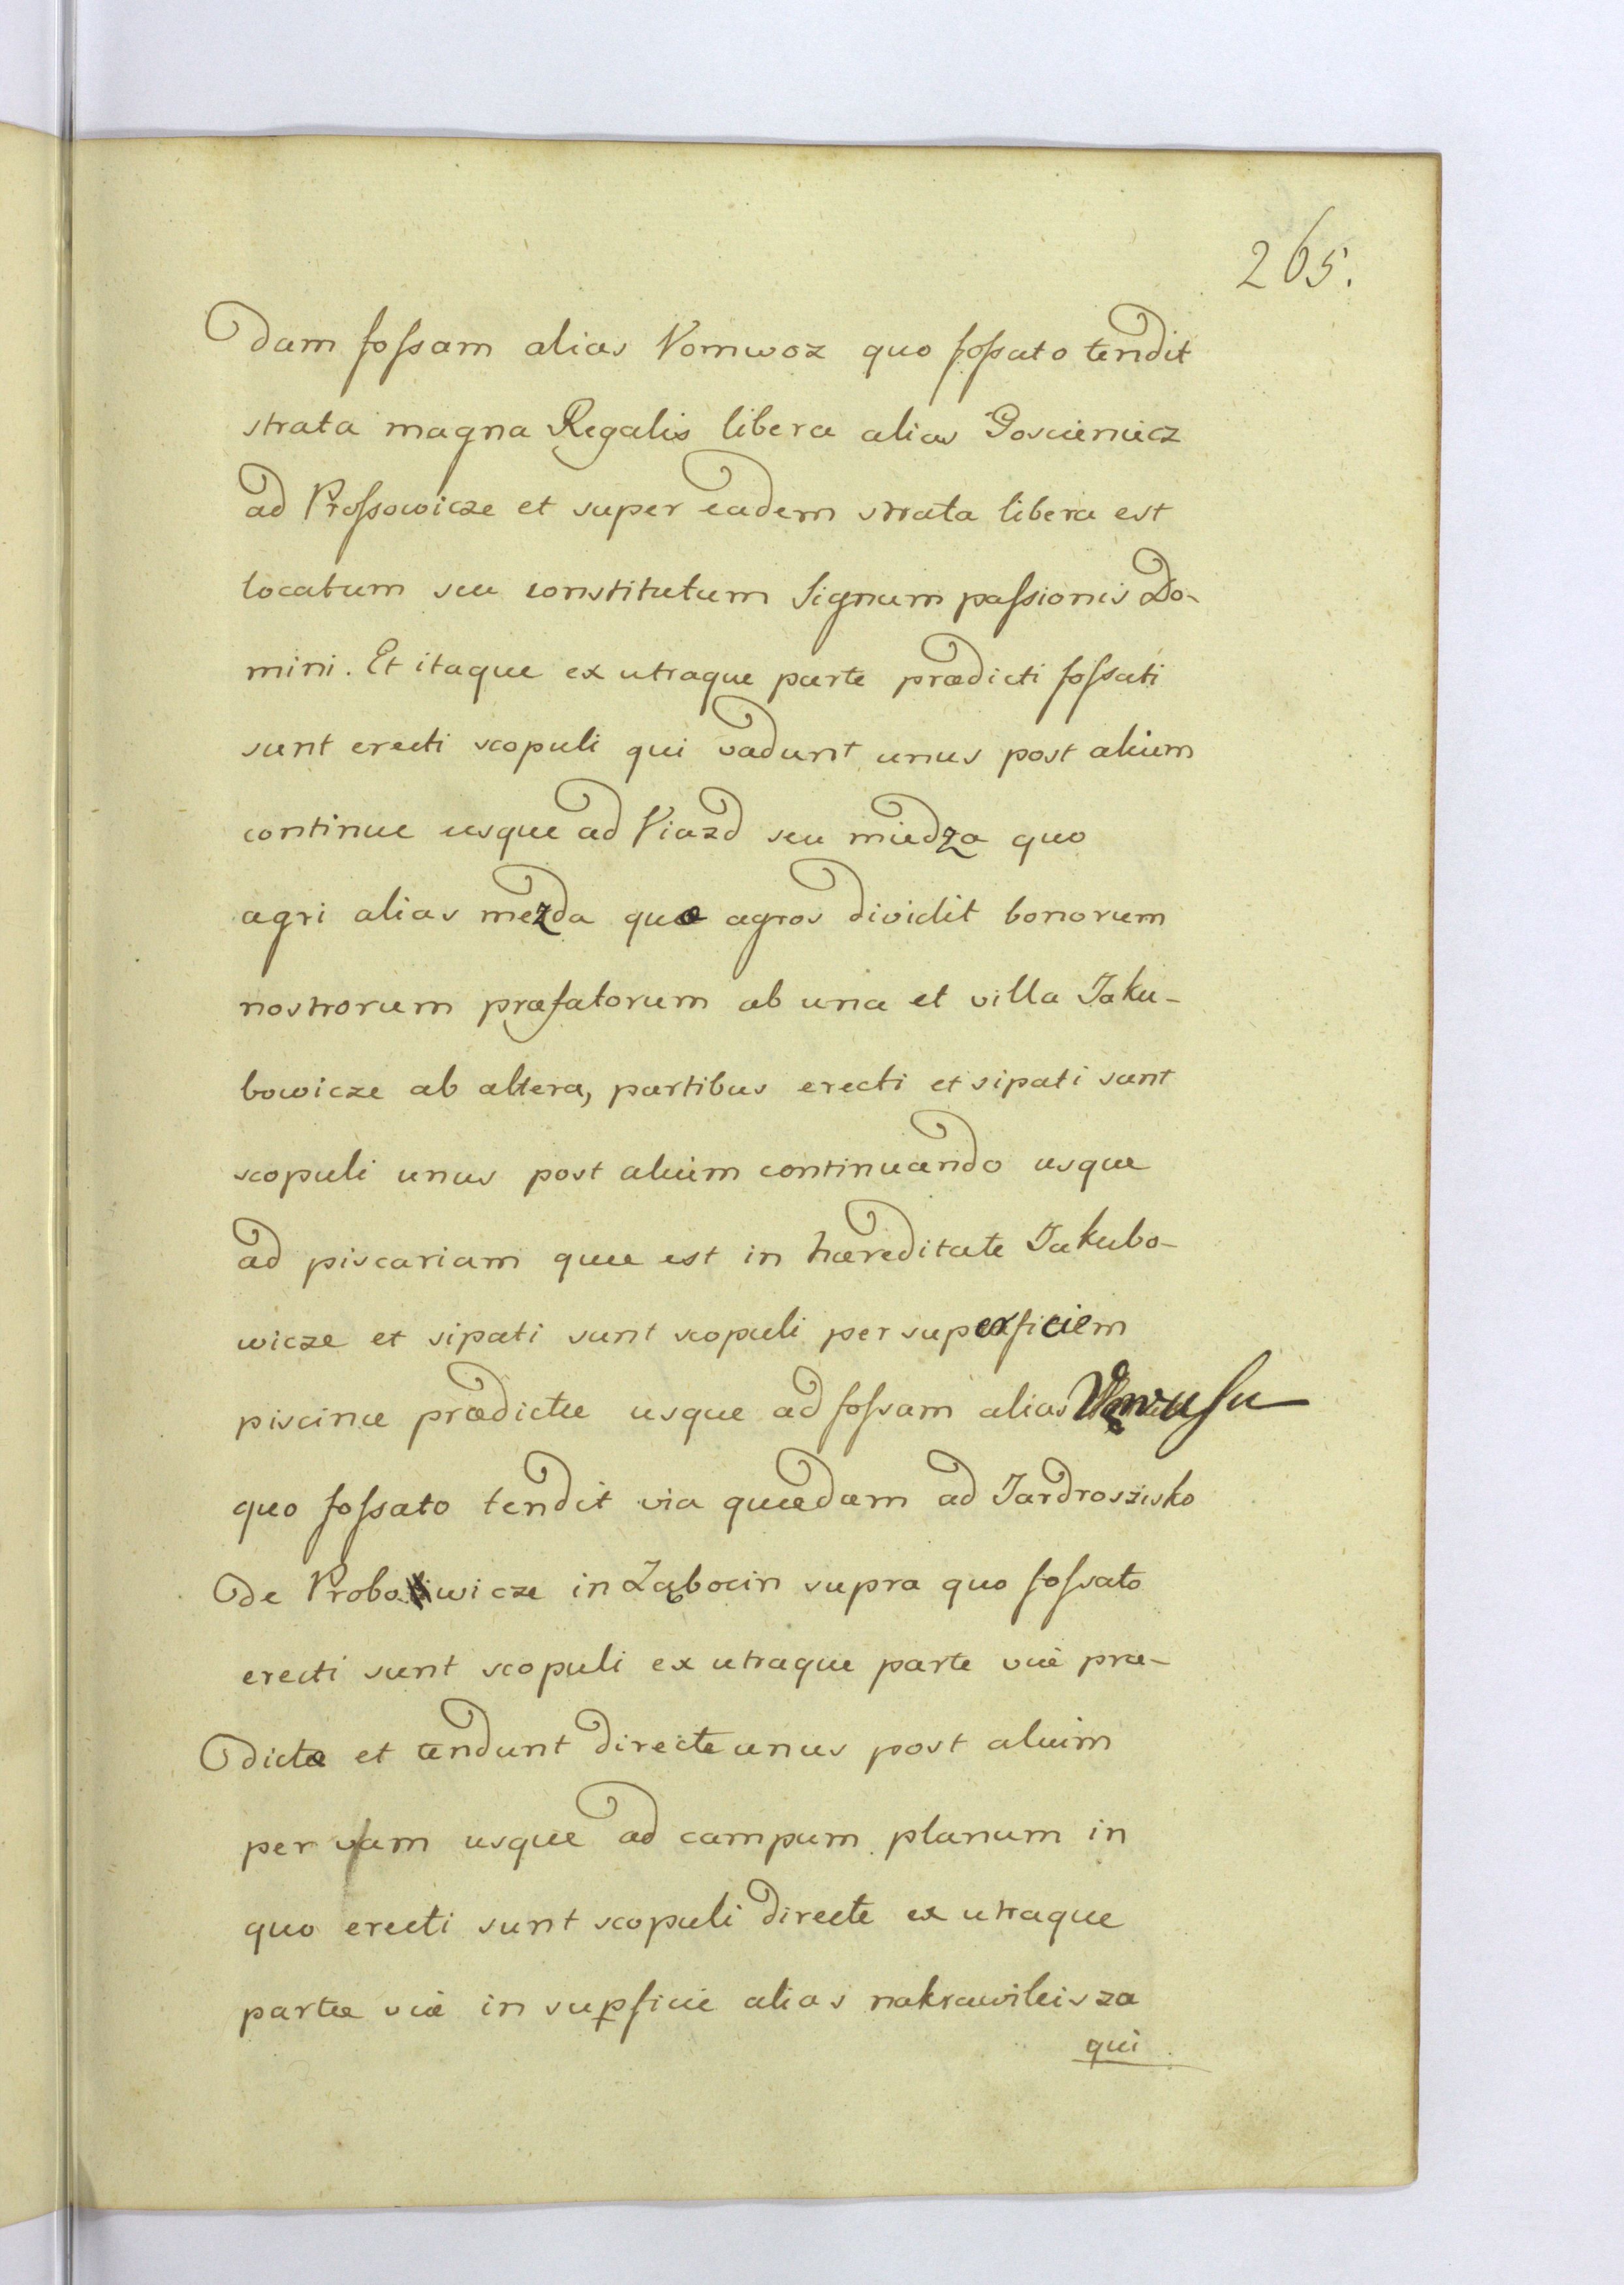 265.
dam fossam alias Vomwoz quo fossato tendit
strata magna Regalis libera alias Goscieniecz
ad Prossowicze et super eadem strata libera est
locatum seu constitutum signum passionis Do-
mini. Et itaque ex utraque parte prædicti fossati
sunt erecti scopuli qui vadunt unus post alium
continue usque ad Viazd seu miedza quo
agri alias mezda quæ agros dividit bonorum
nostrorum præfatorum ab una et villa Jaku-
bowicze ab altera, partibus erecti et sipati sunt
scopuli unus post alium continuando usque
ad piscariam quæ est in hæreditate Jakubo-
wicze et sipati sunt scopuli per superficiem
piscinæ prædictæ usque ad fossam alias
quo fossato tendit via quædam ad Jardroszisko
de in Ząbocin supra quo fossato
erecti sunt scopuli ex utraque parte viæ præ-
dictæ et tendunt directe unus post alium
per usque ad campum planum in
quo erecti sunt scopuli directe ex utraque
partæ viæ in supficie alias nakrawileisza
qui